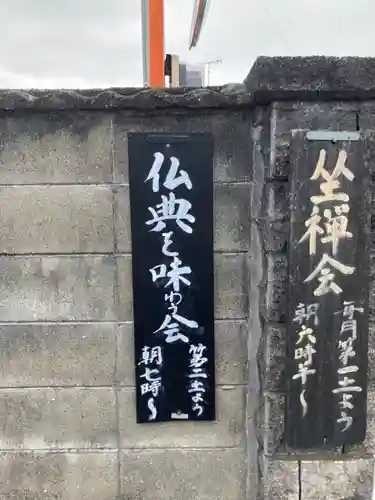 坐禅会
毎月第一土より
朝六時半〜
仏典を味わう会
第二土より
朝七時〜